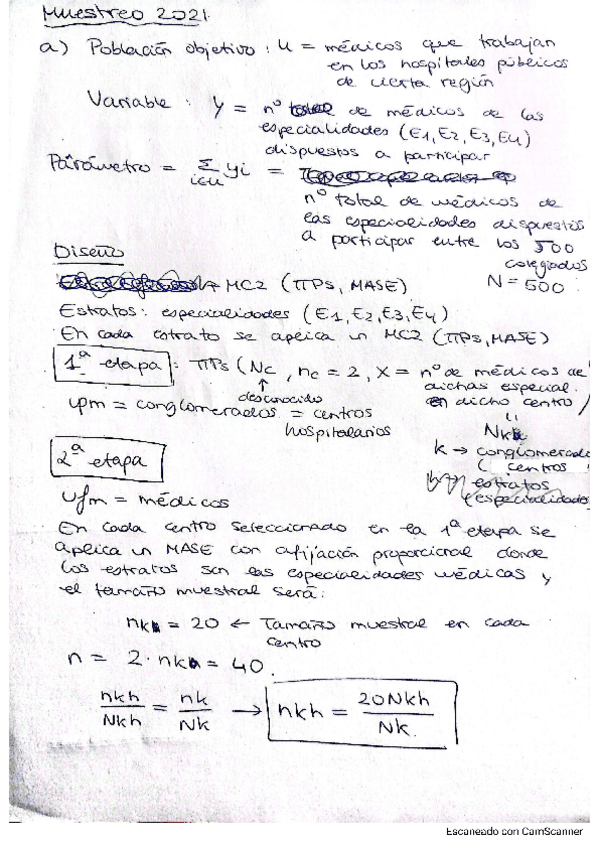 Muestreo 2021.
a) Población objetivo: U = médicos que trabajan
en los hospitales públicos
de cierta región
Variable: y = nº total de médicos de las
especialidades (E1, E2, E3, E4)
dispuestos a participar
Parámetro = Σ yi =
i∈U
nº total de médicos de
las especialidades dispuestos
a participar entre los 500
colegiados
N = 500
Diseño
MC2 (πPS, MASE)
Estratos: especialidades (E1, E2, E3, E4)
En cada estrato se aplica un MC2 (πPS, MASE)
1ª etapa: πPS (Nc, nc = 2, x = nº de médicos de
dichas especial.
en dicho centro)
↑
desconocido
upm = conglomerados = centros
hospitalarios
Nk
k → conglomerado
(centros
estratos
(especialidades
2ª etapa
ufm = médicos
En cada centro seleccionado en la 1ª etapa se
aplica un MASE con afijación proporcional donde
los estratos son las especialidades médicas y
el tamaño muestral será:
nk = 20 ← Tamaño muestral en cada
centro
n = 2·nk = 40.
nkh/Nkh = nk/Nk → nkh = 20Nkh/Nk.
Escaneado con CamScanner